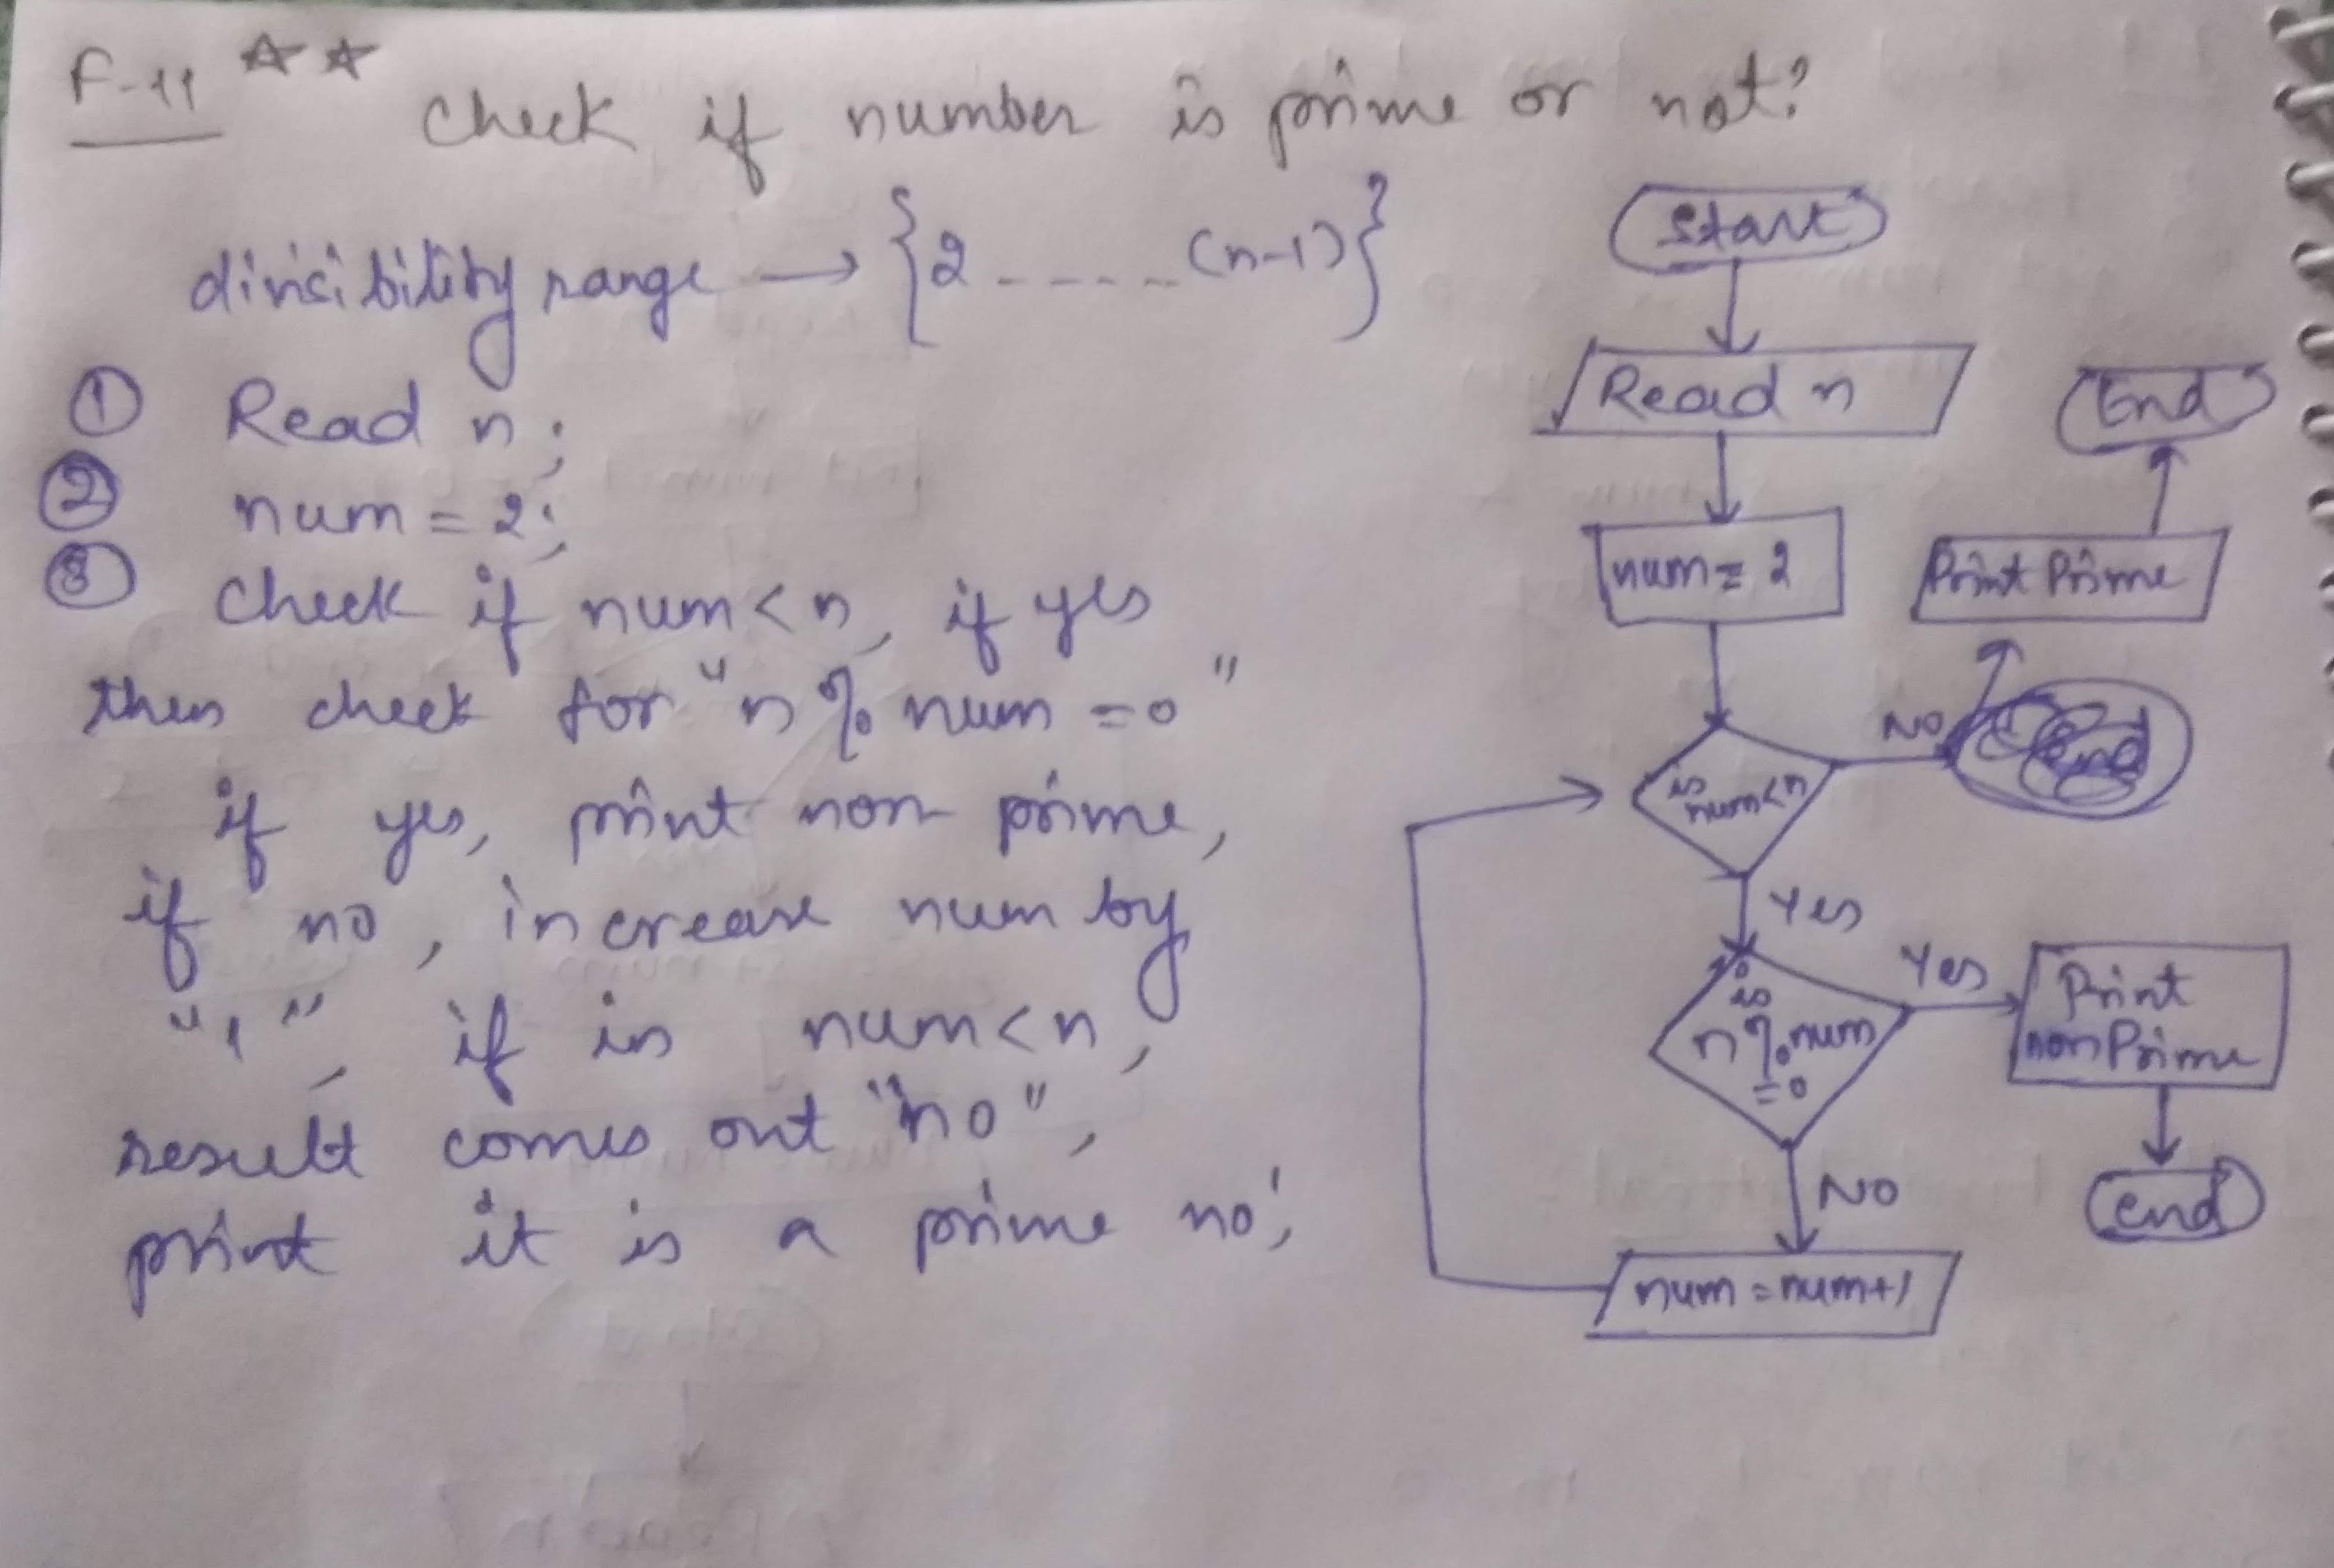 F-11
Check if number is prime or not?
divisibility range → {2 ----- (n-1)}
① Read n;
② num = 2;
③ Check if num<n, if yes
then check for "n % num =0"
if yes, print non prime,
if no, increase num by
"1", if is num<n,
result comes out "no",
print it is a prime no;
Start
Read n
num = 2
is
num<n
No
end
Print Prime
End
Yes
is
n % num
=0
Yes
Print
non Prime
end
NO
num = num+1